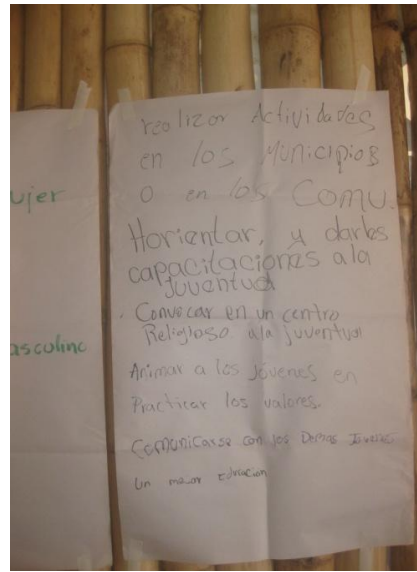 ujer
asculino
realizar Actividades
en los Municipios
O en los Comu.
Horientar, y darles
capacitaciones a la
juventud
. Convocar en un centro
Religioso a la juventud
Animar a los jóvenes en
Practicar los valores.
Comunicarse con los Demas Jovenes
Un mejor Educacion